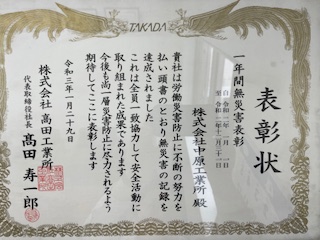 TAKADA
表彰状
一年間無災害表彰
自 令和二年一月一日
至 令和二年十二月三十一日
株式会社中原工業所 殿
貴社は労働災害防止に不断の努力を
払い頭書のとおり無災害の記録を
達成されました
これは全員一致協力して安全活動に
取り組まれた成果であります
今後も尚一層災害防止に尽力されるよう
期待してここに表彰します
令和三年一月二十九日
株式会社 高田工業所
代表取締役社長 髙田寿一郎